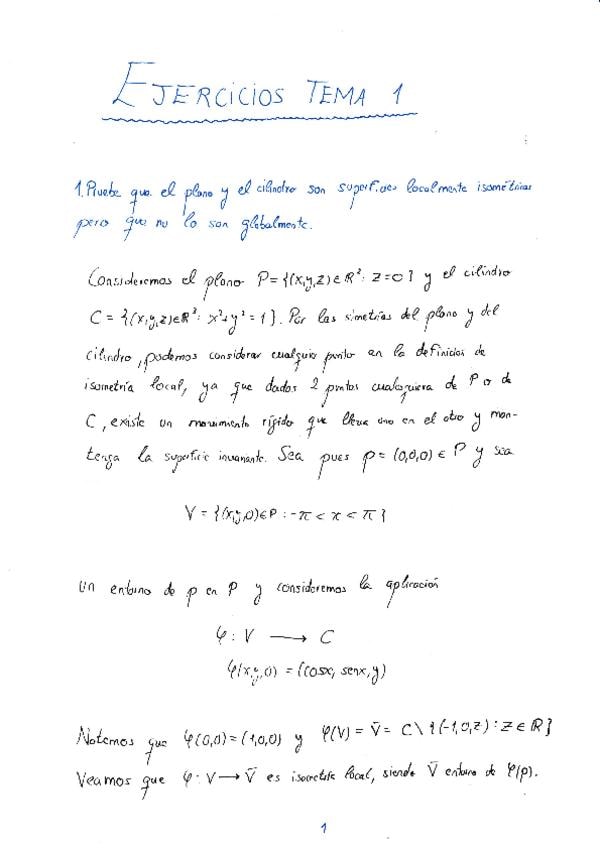 EJERCICIOS TEMA 1
1. Pruebe que el plano y el cilindro son superficies localmente isométricas
pero que no lo son globalmente.
Consideremos el plano P={(x,y,z)∈ℝ³: z=0} y el cilindro
C = {(x,y,z)∈ℝ³: x²+y²=1}. Por las simetrías del plano y del
cilindro, podemos considerar cualquier punto en la definición de
isometría local, ya que dados 2 puntos cualesquiera de P o de
C, existe un movimiento rígido que lleva uno en el otro y man-
tenga la superficie invariante. Sea pues p=(0,0,0) ∈ P y sea
V = {(x,y,0)∈P : -π < x < π}
un entorno de p en P y consideremos la aplicación
φ : V ⟶ C
φ(x,y,0) = (cosx, senx, y)
Notemos que φ(0,0)=(1,0,0) y φ(V) = Ṽ = C\{(-1,0,z) : z ∈ ℝ}
Veamos que φ : V ⟶ Ṽ es isometría local, siendo Ṽ entorno de φ(p).
1